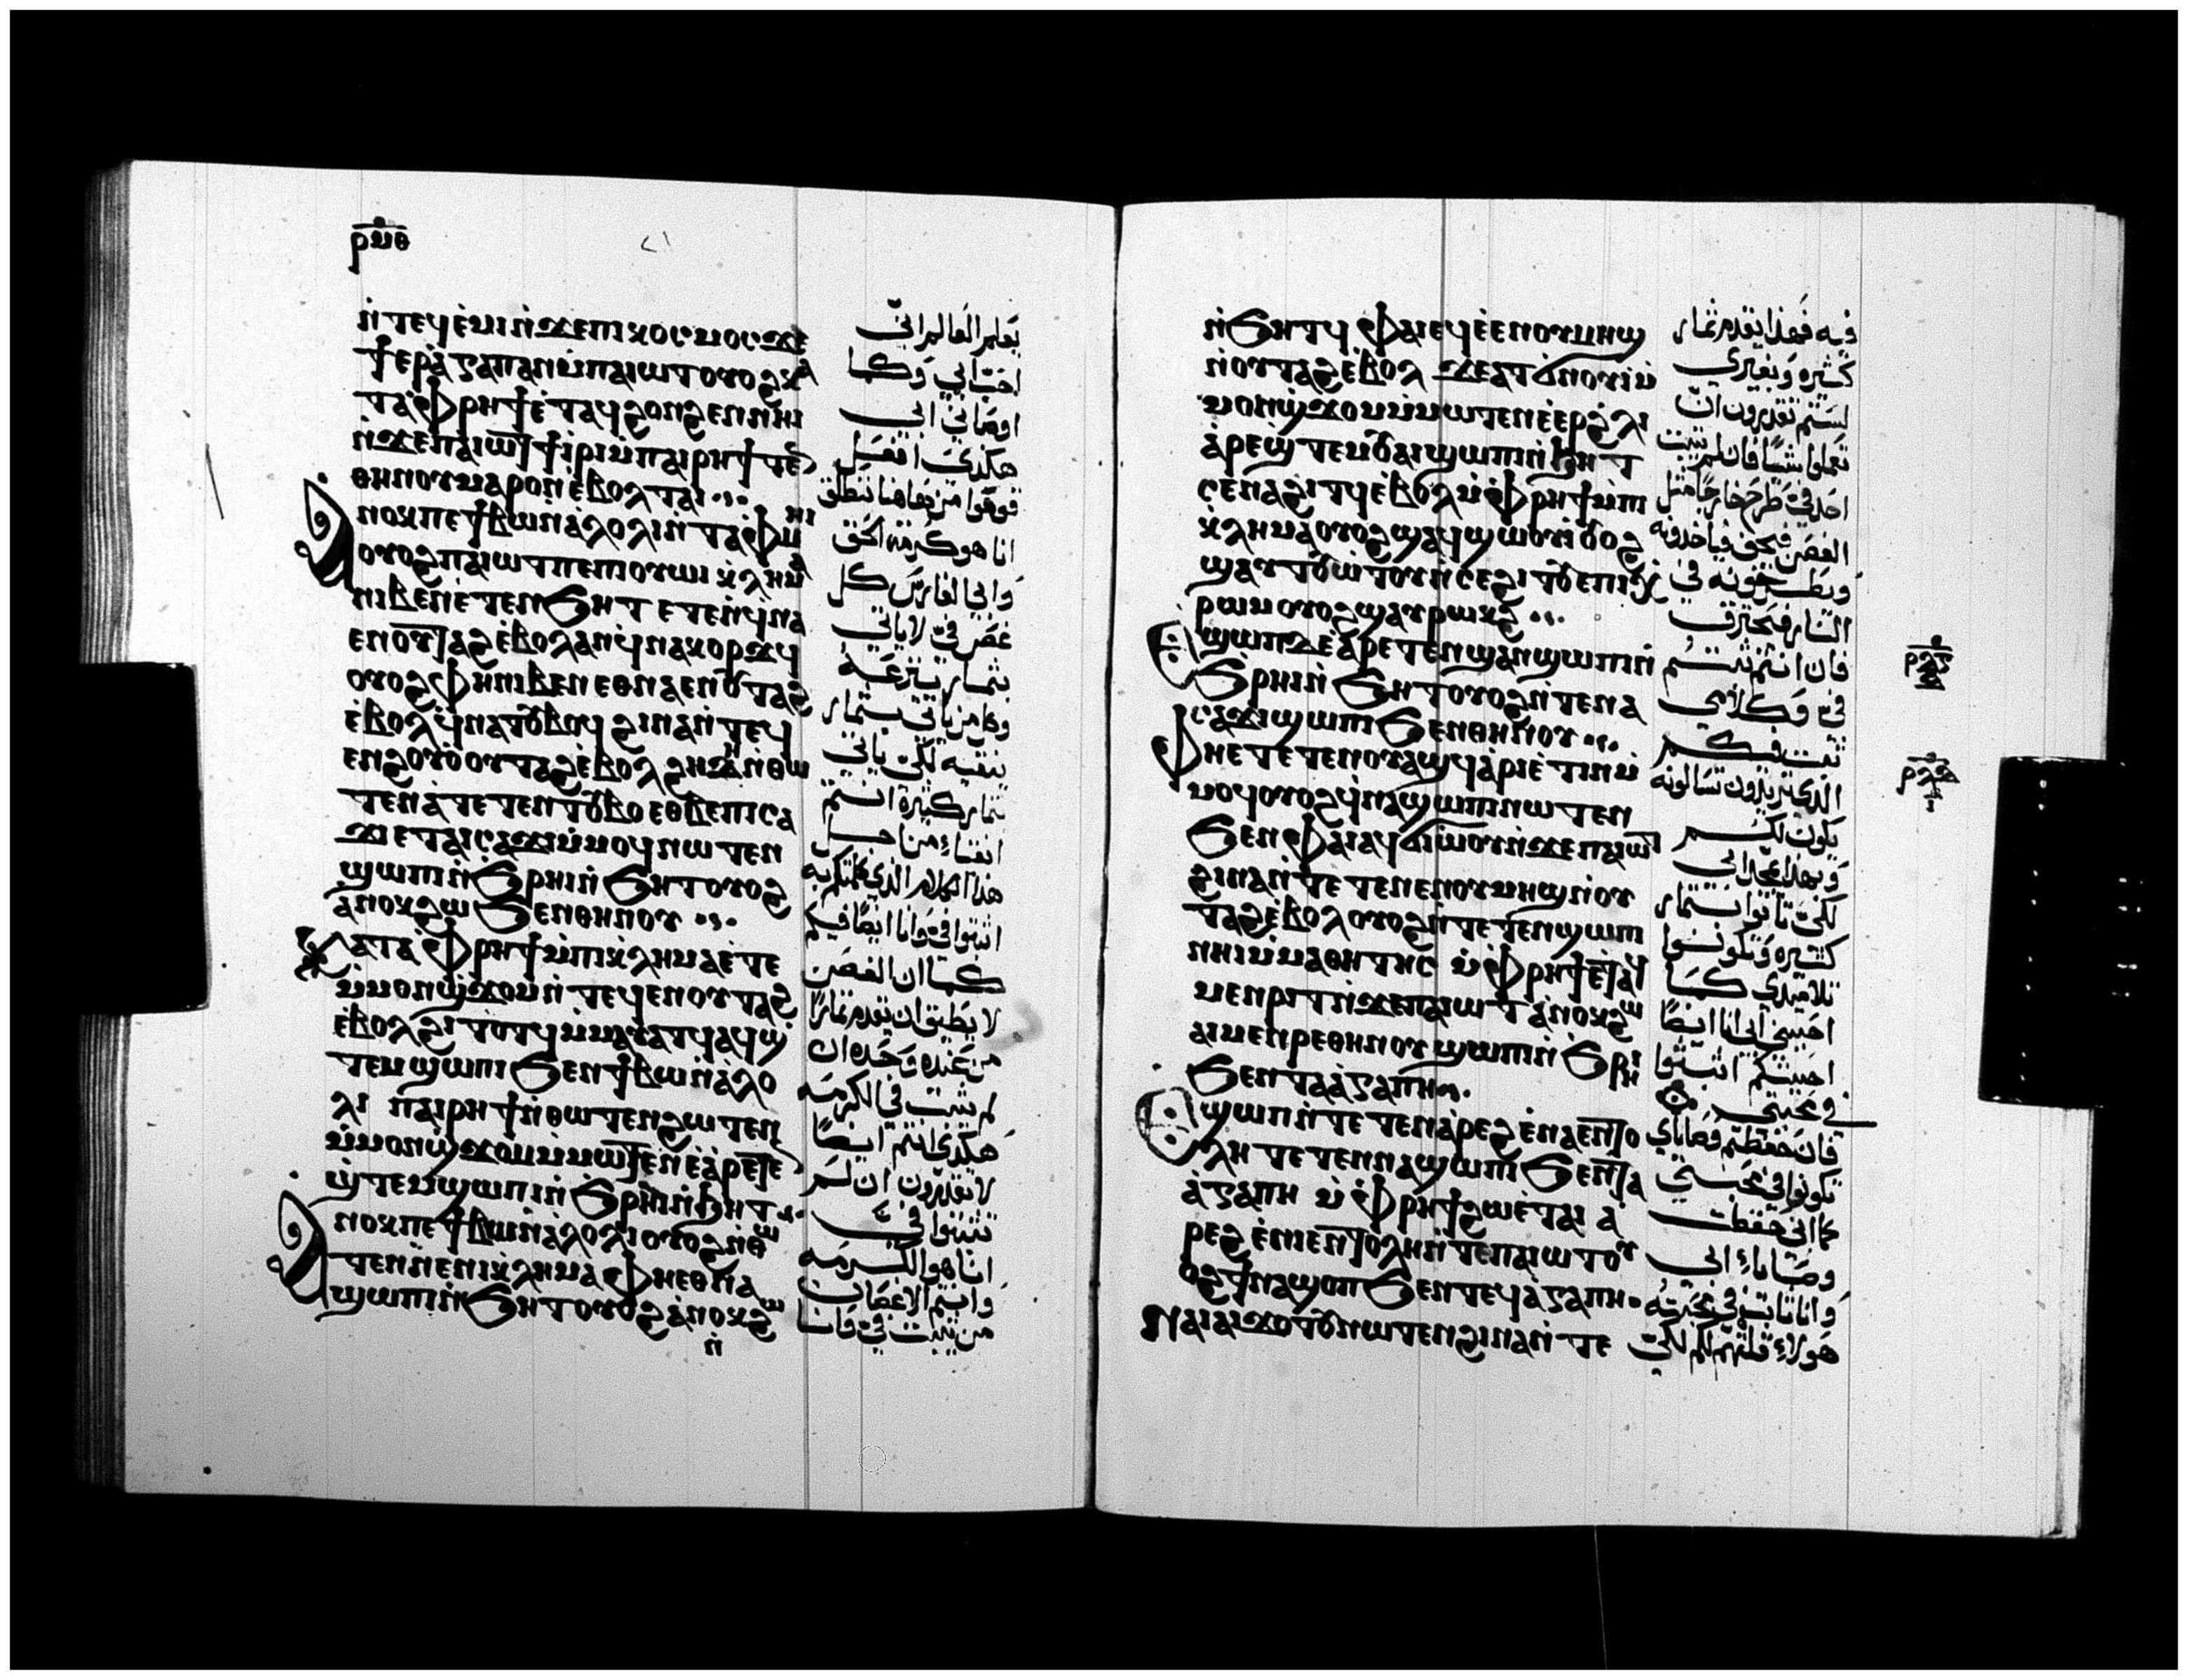 ⲣⲙⲑ
ⲛ̇ⲧⲉϥⲉ̇ⲙⲓ ⲛ̇ϫⲉⲡⲓⲕⲟⲥⲙⲟⲥ ϫⲉ
ϯⲉⲣⲁ̇ⲅⲁⲡⲁⲛ ⲙ̇ⲡⲁⲓⲱⲧ ⲟⲩⲟϩ ⲕⲁ
ⲧⲁ ⲫ̇ⲣⲏϯ ⲉ̇ⲧⲁϥϩⲟⲛϩⲉⲛ ⲛⲏⲓ
ⲛ̇ϫⲉⲡⲁⲓⲱⲧ ϯⲓⲣⲓ ⲙ̇ⲡⲁⲓⲣⲏϯ ⲧⲉⲛ
ⲑⲏⲛⲟⲩ ⲙⲁⲣⲟⲛ ⲉ̇ⲃⲟⲗ ⲧⲁⲓ
ⲁⲛⲟⲕ ⲡⲉ ϯⲃⲱ ⲛ̇ⲁ̇ⲗⲟⲗⲓ ⲛ̇ⲧⲁⲫ̇ⲙⲏⲓ
ⲟⲩⲟϩ ⲡⲁⲓⲱⲧ ⲡⲉ ⲡⲓⲟⲩⲱⲓ ⲕ̇ⲗⲏⲙⲁ
ⲛⲓⲃⲉⲛ ⲉ̇ⲧⲉⲛϧⲏⲧ ⲉⲧⲉⲛ̇ϥⲛⲁ
ⲉⲛⲟⲩⲧⲁϩ ⲉ̇ⲃⲟⲗ ⲁⲛ ϥ̇ⲛⲁⲕⲟⲣϫϥ
ⲟⲩⲟϩ ⲫⲏ ⲛⲓⲃⲉⲛ ⲉⲑⲛⲁⲉⲛⲟⲩⲧⲁϩ
ⲉ̇ⲃⲟⲗ ϥ̇ⲛⲁⲧⲟⲩⲃⲟϥ ϩⲓⲛⲁ ⲛ̇ⲧⲉϥ
ⲉⲛϩⲟⲩⲟ̇ ⲟⲩⲧⲁϩ ⲉ̇ⲃⲟⲗ ϩⲏⲇⲏ ⲛ̇ⲑⲱ
ⲧⲉⲛ ⲁ̇ⲧⲉⲧⲉⲛⲧⲟⲩⲃⲟ ⲉⲑⲃⲉ ⲡⲓⲥⲁ
ϫⲓ ⲉⲧⲁⲓⲥⲁϫⲓ ⲙ̇ⲙⲟϥ ⲛⲱⲧⲉⲛ
ϣⲱⲡⲓ ⲛ̇ϧⲣⲏⲓ ⲛ̇ϧⲏⲧ ⲟⲩⲟϩ
ⲁⲛⲟⲕ ϩⲱ ϧⲉⲛ ⲑⲏⲛⲟⲩ
ⲕⲁⲧⲁ ⲫ̇ⲣⲏϯ ⲙ̇ⲡⲓⲕ̇ⲗⲏⲙⲁ ⲉ̇ⲧⲉ
ⲙ̇ⲙⲟⲛϣ̇ϫⲟⲙ ⲛ̇ⲧⲉϥⲉⲛⲟⲩⲧⲁϩ
ⲉ̇ⲃⲟⲗ ϩⲓⲧⲟⲧϥ ⲙ̇ⲙⲁⲩⲁⲧϥ ⲁϥϣ̇
ⲧⲉⲙϣⲱⲡⲓ ϧⲉⲛ ϯⲃⲱ ⲛ̇ⲁ̇ⲗⲟ
ⲗⲓ ⲡⲁⲓⲣⲏϯ ⲛ̇ⲑⲱⲧⲉⲛ ϩⲱⲧⲉⲛ
ⲙ̇ⲙⲟⲛϣ̇ϫⲟⲙ ⲙ̇ⲙⲱⲧⲉⲛ ⲉ̇ⲁ̇ⲣⲉⲧⲉ
ϣ̇ⲧⲉⲙϣⲱⲡⲓ ⲛ̇ϧⲣⲏⲓ ⲛ̇ϧⲏⲧ
ⲁⲛⲟⲕ ⲡⲉ ϯⲃⲱ ⲛ̇ⲁ̇ⲗⲟⲗⲓ ⲟⲩⲟϩ ⲛ̇ⲑⲱ
ⲧⲉⲛ ⲛⲉ ⲛⲓⲕ̇ⲗⲏⲙⲁ ⲫⲏ ⲉⲑⲛⲁ
ϣⲱⲡⲓ ⲛ̇ϧⲏⲧ ⲟⲩⲟϩ ⲁ̇ⲛⲟⲕ ϩⲱ
ⲛ̇
يعلم العالم اني
احب ابي وكما
اوصاني ابي
هكذي افعل
قوموا من هاهنا ننطلق
انا هو كرمة الحق
وابي الغارس كل
غصن في لا ياتي
بثمار ينزعه
وكلمن ياتي بثمار
ينقيه لكي ياتي
ثمار كثيرة انتم
انقياء من اجل
هذا الكلام الذي كلمتكم به
اثبتوا في وانا ايضا فيكم
كما ان الغصن
لا يطيق ان يقدم ثمارا
من عنده وحده ان
لم يثبت في الكرمه
هكذي انتم ايضا
لا تقدرون ان لم
تثبتوا في
انا هو الكرمه
وانتم الاغصان
من يثبت في وانا
ⲛ̇ϧⲏⲧϥ ⲫⲁⲓ ⲉϥⲉ̇ⲉⲛⲟⲩⲙⲏϣ
ⲛ̇ⲟⲩⲧⲁϩ ⲉ̇ⲃⲟⲗ ϫⲉ ⲁⲧϭⲛⲟⲩⲓ ⲙ̇
ⲙⲟⲛϣ̇ϫⲟⲙ ⲙ̇ⲙⲱⲧⲉⲛ ⲉ̇ⲉⲣϩ̇ⲗⲓ
ⲁ̇ⲣⲉϣ̇ⲧⲉⲙ ⲟⲩⲁⲓ ϣⲱⲡⲓ ⲛ̇ϧⲏⲧ
ⲥⲉⲛⲁϩⲓⲧϥ ⲉ̇ⲃⲟⲗ ⲙ̇ⲫ̇ⲣⲏϯ ⲙ̇ⲡⲓ
ⲕ̇ⲗⲏⲙⲁ ⲟⲩⲟϩ ϣⲁϥϣⲱⲟⲩⲓ ⲟⲩⲟϩ
ϣⲁⲩⲑⲟⲩⲱⲧⲟⲩ ⲛ̇ⲥⲉϩⲓⲧⲟⲩ ⲉⲡⲓⲭ̇
ⲣⲱⲙ ⲟⲩⲟϩ ϣⲁⲩⲣⲱⲕϩ
ⲉϣⲱⲡ ϫⲉ ⲁ̇ⲣⲉⲧⲉⲛϣⲁⲛϣⲱⲡⲓ ⲛ̇
ϧⲣⲏⲓ ⲛ̇ϧⲏⲧ ⲟⲩⲟϩ ⲛ̇ⲧⲉⲛⲁ
ⲥⲁϫⲓ ϣⲱⲡⲓ ϧⲉⲛ ⲑⲏⲛⲟⲩ
ⲫⲏ ⲉⲧⲉⲧⲉⲛⲟⲩⲁϣϥ ⲁ̇ⲣⲓⲉ̇ⲧⲓⲛ ⲙ̇
ⲙⲟϥ ⲟⲩⲟϩ ϥ̇ⲛⲁϣⲱⲡⲓ ⲛⲱⲧⲉⲛ
ϧⲉⲛ ⲫⲁⲓ ⲁϥϭⲓⲱ̇ⲟⲩ ⲛ̇ϫⲉ ⲡⲁⲓⲱⲧ
ϩⲓⲛⲁ ⲛ̇ⲧⲉⲧⲉⲛⲉⲛⲟⲩⲙⲏϣ ⲛ̇ⲟⲩ
ⲧⲁϩ ⲉ̇ⲃⲟⲗ ⲟⲩⲟϩ ⲛ̇ⲧⲉⲧⲉⲛϣⲱⲡⲓ
ⲛⲏⲓ ⲙ̇ⲙⲁⲑⲏⲧⲏⲥ ⲙ̇ⲫ̇ⲣⲏϯ ⲉ̇ⲧⲁϥ
ⲙⲉⲛⲣⲓⲧ ⲛ̇ϫⲉ ⲡⲁⲓⲱⲧ ⲁ̇ⲛⲟⲕ ϩⲱ
ⲁⲓⲙⲉⲛⲣⲉ ⲑⲏⲛⲟⲩ ϣⲱⲡⲓ ⲛ̇ϧⲣⲏⲓ
ϧⲉⲛ ⲧⲁⲁ̇ⲅⲁⲡⲏ
ⲉϣⲱⲡ ⲛ̇ⲧⲉⲧⲉⲛⲁ̇ⲣⲉϩ ⲉ̇ⲛⲁⲉⲛⲧⲟ
ⲗⲏ ⲧⲉⲧⲉⲛⲛⲁϣⲱⲡⲓ ϧⲉⲛ ⲧⲁ
ⲁ̇ⲅⲁⲡⲏ ⲙ̇ⲫ̇ⲣⲏϯ ϩⲱ ⲉ̇ⲧⲁⲓⲁ̇
ⲣⲉϩ ⲉ̇ⲛⲓⲉⲛⲧⲟⲗⲏ ⲛ̇ⲧⲉ ⲡⲁⲓⲱⲧ ⲟⲩ
ⲟϩ ϯⲛⲁϣⲟⲡ ϧⲉⲛ ⲧⲉϥⲁ̇ⲅⲁⲡⲏ
ⲛⲁⲓ ⲁⲓϫⲟⲧⲟⲩ ⲛⲱⲧⲉⲛ ϩⲓⲛⲁ ⲛ̇ⲧⲉ
فيه فهذا يقدم ثمار
كثيره وبغيري
لستم تقدرون ان
تعملوا شيئا فان لم يثبت
احد في طرح خارجا مثل
الغصن فيجف فياخذونه
ويطرحونه في
النار فيحترق
فان انتم ثبتم
في وكلامي
ثبت فيكم
الذي تريدون تسالونه
يكون لكم
وبهذا تمجد ابي
لكي تاتوا بثمار
كثيره وتكونوا
تلاميذي كما
احبني ابي انا ايضا
احببتكم اثبتوا
في محبتي
فان حفظتم وصاياي
تكونوا في محبتي
كما اني حفظت
وصايا ابي
وانا ثابت في محبته
هولاء قلتهم لكم لكي
ⲣⲗⲋ
ⲣⲗⲍ